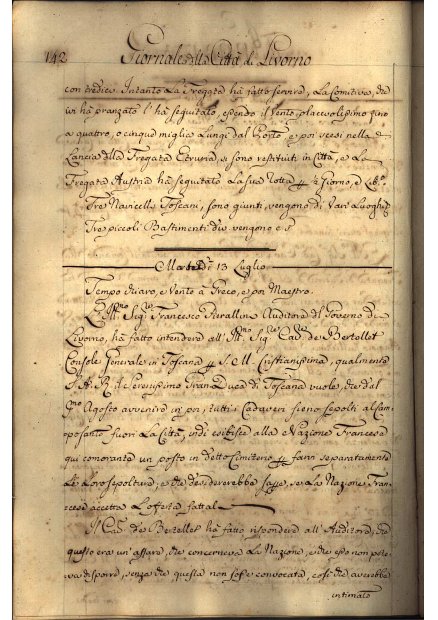 142 Giornale della Città di Livorno
con tredici. Intanto La Fregata hà fatto servire, La Comitiva, che
ivi hà pranzato l'hà seguitato, essendo il Vento placevolissimo fino
a quattro, o cinque miglia Lungi dal Porto, e poi scesi nella
Lancia della Fregata Etruria, si sono restituiti in Città, e La
Fregata Austria hà seguitato La sua rotta
Tre Navicelli Toscani, sono giunti, vengono di Varj Luoghi
Tre piccoli Bastimenti che vengono
Martedì 13 Luglio
Tempo chiaro, e Vento à Greco, e poi Maestro.
L'Ill.mo Sig.re Francesco Pierallini Auditore del Governo di
Livorno, hà fatto intendere all'Ill.mo Sig.re Cav.re de Bertellet
Console Generale in Toscana S.M. Cristianissima, qualmente
S.A.R. il Serenissimo Gran Duca di Toscana vuole, che dal
p.mo Agosto avvenire in poi, tutti i Cadaveri sieno sepolti al Cam-
posanto fuori La Città, indi esibisce alla Nazione Francese
qui comorante un posto in detto Cimiterio farvi separatamente
Le Loro sepolture, e che desidererebbe sapere, se La Nazione Fran-
cese accetta L'offerta fattal
Il Cav. de Bertellet hà fatto rispondere all'Auditore, che
questo era un'affare, che concerneva La Nazione, e che esso non pote-
va disporre, senza che questa non fosse convocata, così che averebbe
intimato